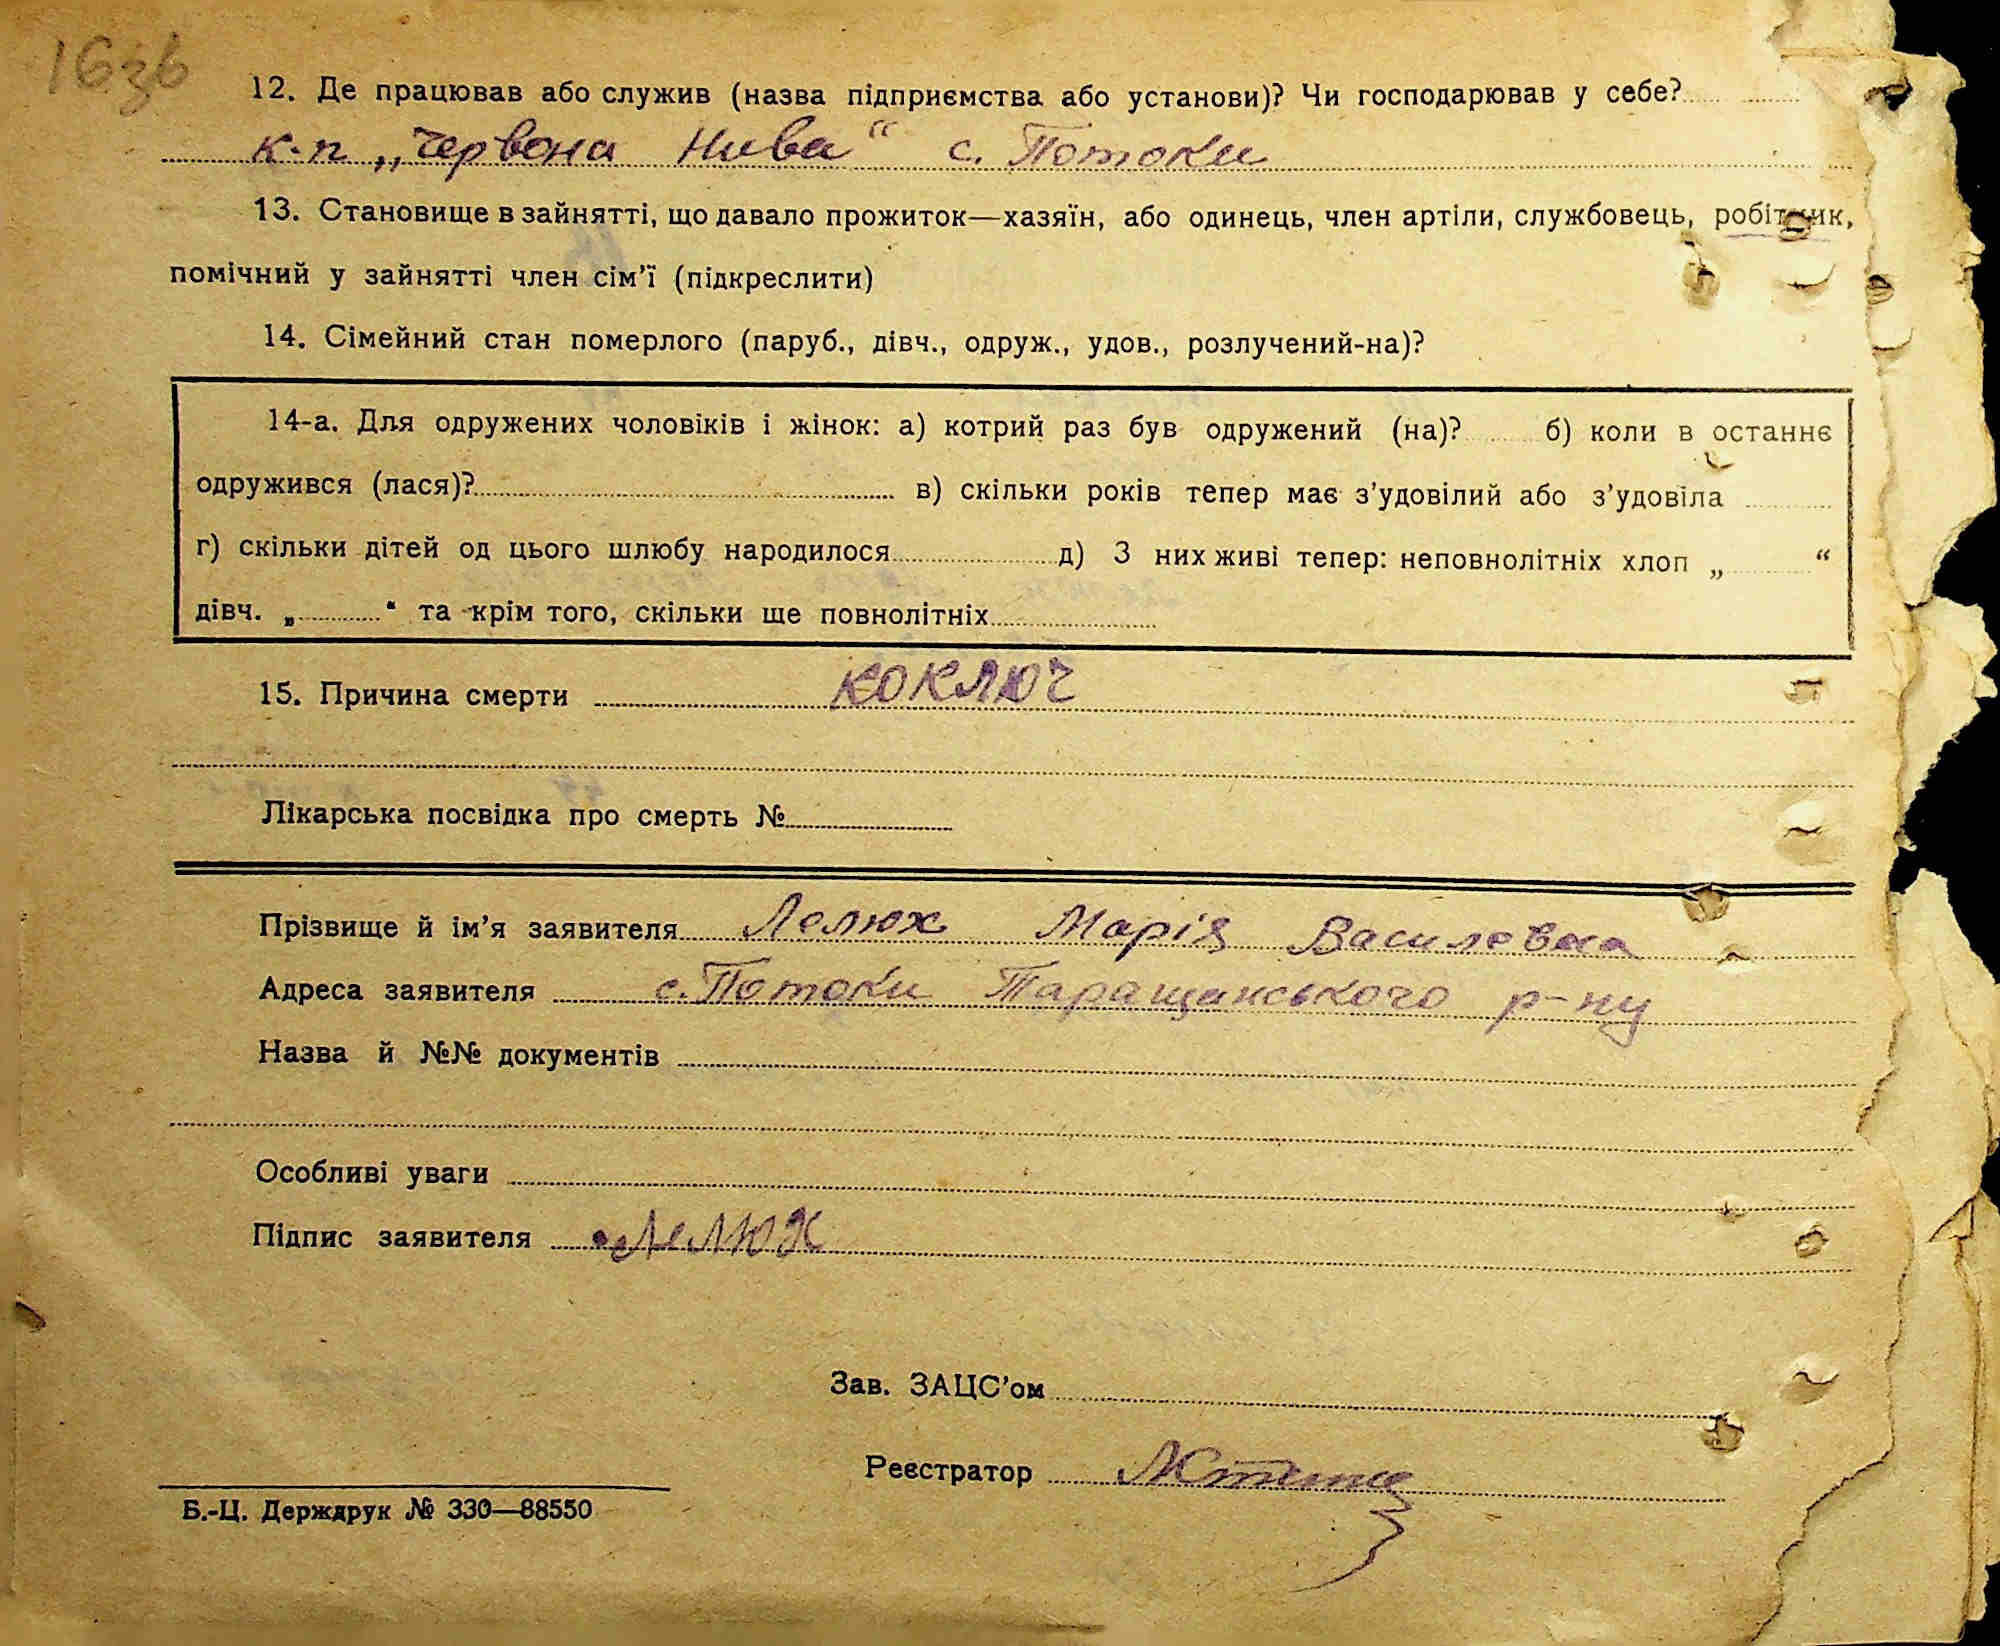 16зв
12. Де працював або служив (назва підприємства або установи)? Чи господарював у себе?
к-п „Червона Нива“ с. Потоки
13. Становище в зайнятті, що давало прожиток—хазяїн, або одинець, член артіли, службовець, робітник,
помічний у зайнятті член сім’ї (підкреслити)
14. Сімейний стан померлого (паруб., дівч., одруж., удов., розлучений-на)?
14-а. Для одружених чоловіків і жінок: а) котрий раз був одружений (на)? б) коли в останнє
одружився (лася)? в) скільки років тепер має з’удовілий або з’удовіла
г) скільки дітей од цього шлюбу народилося д) З них живі тепер: неповнолітніх хлоп „ “
дівч. „ “ та крім того, скільки ще повнолітніх
15. Причина смерти коключ
Лікарська посвідка про смерть №
Прізвище й ім’я заявителя Лелюх Марія Василевна
Адреса заявителя с. Потоки Таращанського р-ну
Назва й №№ документів
Особливі уваги
Підпис заявителя Лелюх
Зав. ЗАЦС’ом
Реєстратор
Б.-Ц. Держдрук № 330—88550